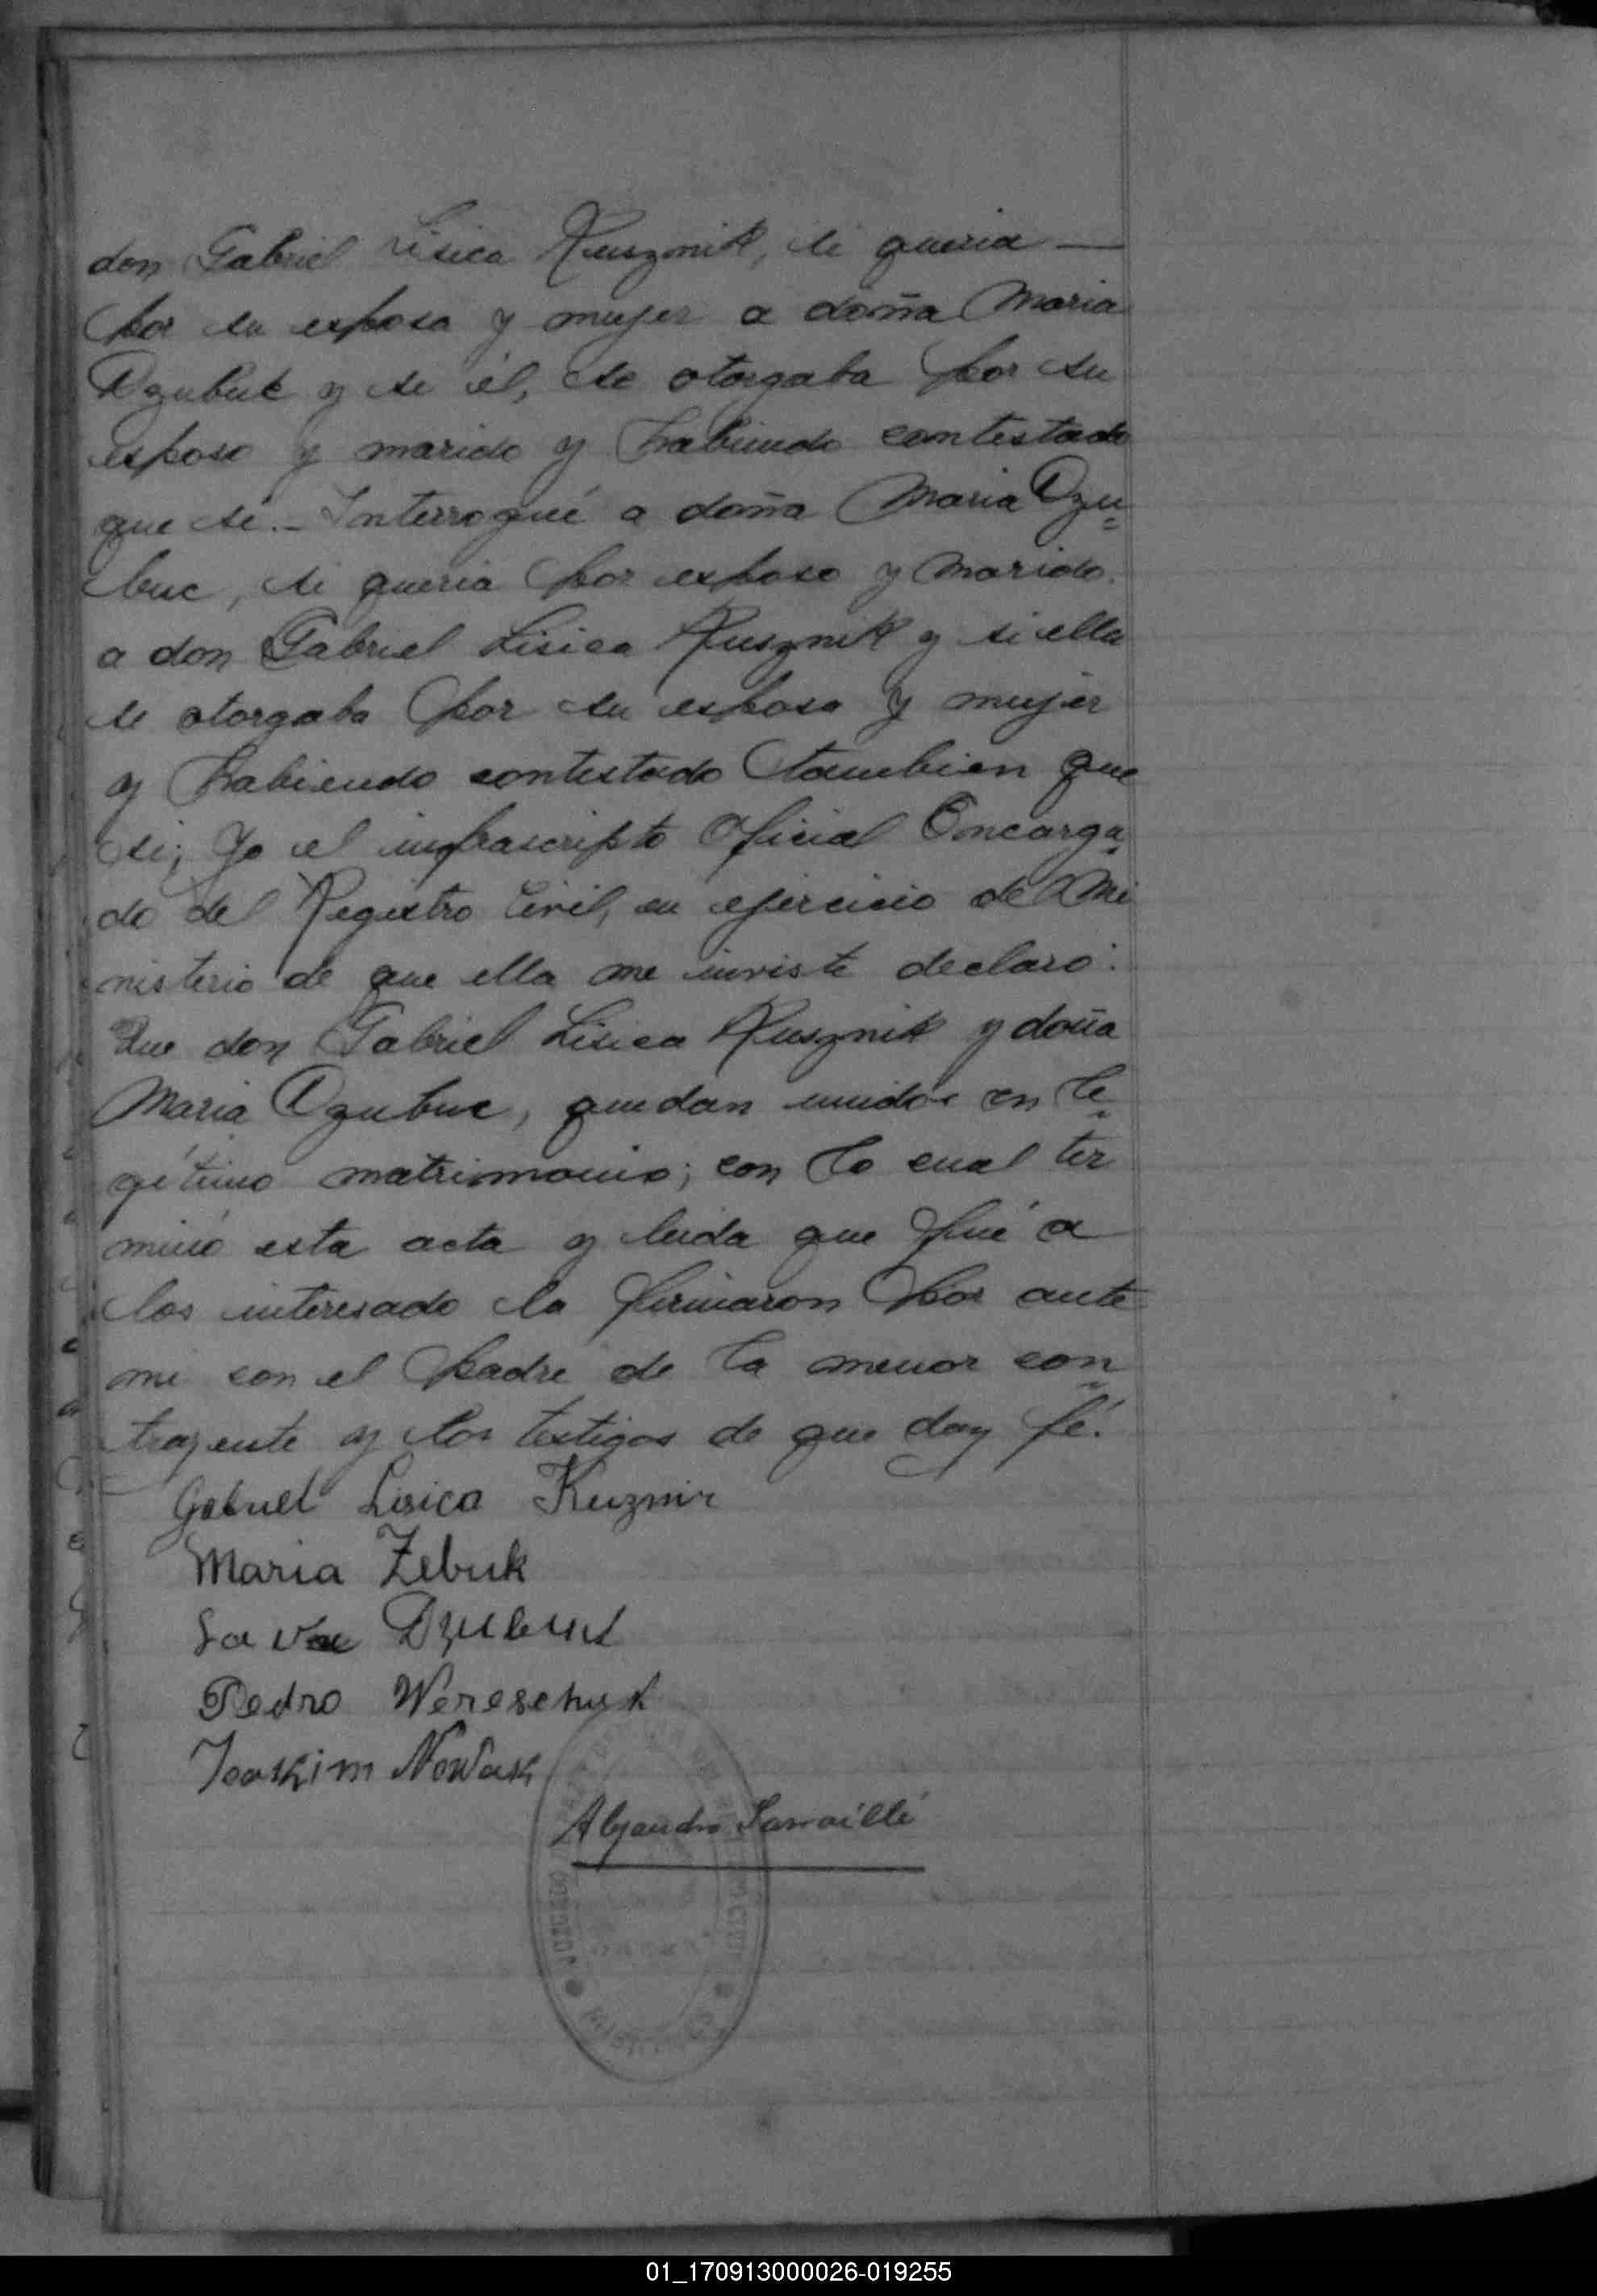 don Gabriel Lisica Kusznik, si queria —
por su esposa y mujer a doña Maria
Dzubuk y si él, se otorgaba por su
esposo y marido y habiendo contestado
que si.- Interrogué a doña Maria Dzu=
buc, si queria por esposo y marido
a don Gabriel Lisica Kusznik y si ella
se otorgaba por su esposa y mujer
y habiendo contestado tambien que
si; Yo el infrascripto Oficial Encarga-
do del Registro Civil, en ejercicio del Mi
nisterio de que ella me inviste declaro:
Que don Gabriel Lisica Kusznik y doña
Maria Dzubuc, quedan unidos en le-
gitimo matrimonio; con lo cual ter
minó esta acta y leida que fué a
los interesado la firmaron por ante
mi con el padre de la menor con-
trayente y los testigos de que doy fé.
Gabriel Lisica Kuzmir
Maria Zebuk
Sava Dzubuk
Pedro Wereschuk
Joakim Nowak
Alejandro
01_170913000026-019255